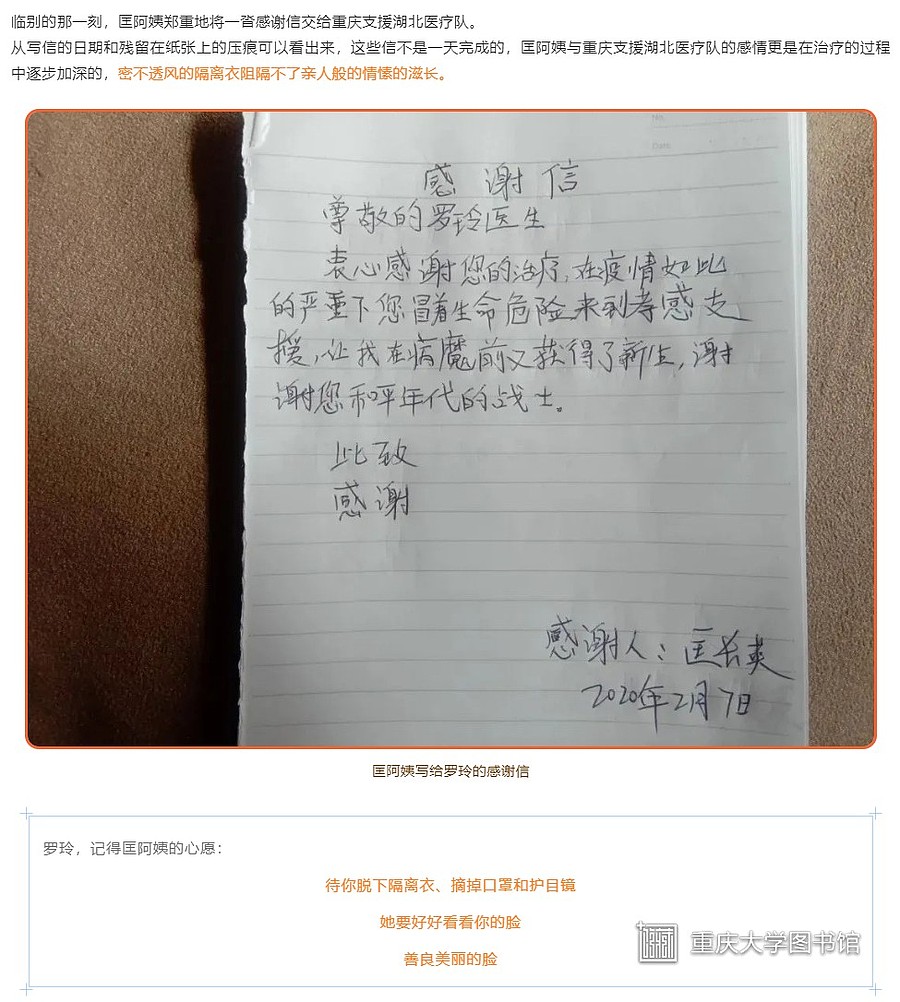 临别的那一刻，匡阿姨郑重地将一沓感谢信交给重庆支援湖北医疗队。
从写信的日期和残留在纸张上的压痕可以看出来，这些信不是一天完成的，匡阿姨与重庆支援湖北医疗队的感情更是在治疗的过程
中逐步加深的，密不透风的隔离衣阻隔不了亲人般的情愫的滋长。
感谢信
尊敬的罗玲医生
衷心感谢您的治疗，在疫情如此
的严重下您冒着生命危险来到孝感支
援，让我在病魔前又获得了新生，谢
谢您和平年代的战士。
此致
感谢
感谢人：匡长爽
2020年2月7日
匡阿姨写给罗玲的感谢信
罗玲，记得匡阿姨的心愿：
待你脱下隔离衣、摘掉口罩和护目镜
她要好好看看你的脸
善良美丽的脸
重庆大学图书馆